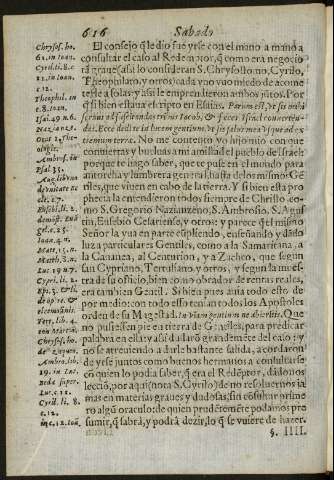 616 Sabado
El consejo q̃ le dio fue yrse con el mano a mano a
consultar el caso al Redemptor, que como era negocio
graue (assi lo consideran S. Chrysostomo, Cyrilo,
Theophilato, y otros) cada vno vuo miedo de acome-
terle a solas y assi le emprendieron ambos juntos. Por
q̃ si bien estaua escripto en Esaias. Parum est, vt sis mihi
seruus ad suscitandas tribus Iacob, & feces Israel conuerten-
das. Ecce dedi te in lucem gentium, vt sis salus mea vsque ad ex-
tremum terræ. No me contento yo hijo mio con que
conuiertas y bueluas a mi amistad el pueblo de Israel:
porque te hago saber, que te puse en el mundo para
antorcha y lumbrera general, hasta de los mismos Gen-
tiles, que viuen en cabo de la tierra. Y si bien esta pro-
phecia la entendieron todos siempre de Christo, co-
mo S. Gregorio Nazianzeno, S. Ambrosio, S. Augus-
tin, Eusebio Cesariense, y otros: y parece q̃ el mismo
Señor la yua en parte cũpliendo, enseñando y dãdo
luz a particulares Gentiles, como a la Samaritana, a
la Cananea, al Centurion, y a Zacheo, que segun
san Cypriano, Tertuliano y otros, y segun la mues-
tra de su oficio, bien como obrador de rentas reales,
era tambien Gentil. Si bien pues auia todo esto de
por medio: con todo esso tenian todos los Apostoles
orden de su Magestad. In viam gentium ne abieritis. Que
no pusiessen pie en tierra de Gentiles, para predicar
palabra en ella: y assi dudarõ grandemẽte del caso: y
no se atreuiendo a darle bastante salida, acordaron
de yrse juntos como buenos hermanos a consultarse
con quien lo podia saber, q̃ era el Redẽptor, dãdonos
lecciõ, por aqui (nota S. Cyrilo) de no resoluernos ja-
mas en materias graues y dudosas, sin cõsultar prime-
ro algũ oraculo: de quien prudẽtemẽte podamos pre-
sumir, q̃ sabrà, y podrà dezir, lo q̃ se vuiere de hazer.
§. IIII.
Chrysos. ho.
Cyril. li. 8. c.
12. in Ioan.
c. 12.
Theophil. in
c. 8. Ioan.
Isai. 49 n. 6.
Nazianze.
Ambros. in
Psal. 35.
Aug. lib. vn.
de vnitate ec
Eusebi. li. 2.
Ioan. 4. n.
Matt. 15. n.
Matth. 8. n.
Luc. 19 n. 7.
Cypri. li. 2.
Chrysos. ho.
Ambro. lib.
19. in Luc.
Beda super.
Luc. c. 12.
Cyril. li. 8. c.
in c. 12. Ioã.